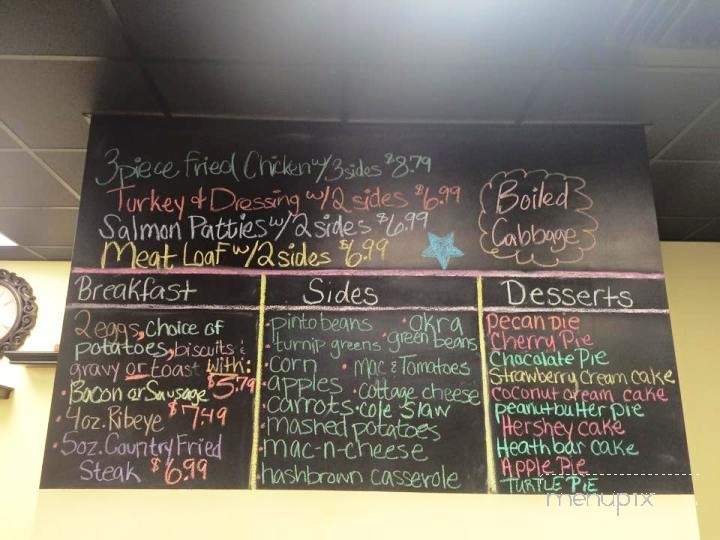 3 piece Fried Chicken w/ 3 sides $8.79
Turkey & Dressing w/ 2 sides $6.99
Salmon Patties w/ 2 sides $6.99
Meat Loaf w/ 2 sides $6.99
Boiled
Cabbage
Breakfast
2 eggs, choice of
potatoes, biscuits &
gravy or toast with:
• Bacon or Sausage $5.79
• 4oz. Ribeye $7.49
• 5oz. Country Fried
Steak $6.99
Sides
• pinto beans • okra
• turnip greens • green beans
• corn • Mac & Tomatoes
• apples • cottage cheese
• carrots • cole slaw
• mashed potatoes
• mac-n-cheese
• hashbrown casserole
Desserts
Pecan Pie
Cherry Pie
Chocolate Pie
Strawberry Cream cake
coconut cream cake
peanutbutter pie
Hershey cake
Heathbar cake
Apple Pie
TURTLE PIE
menupix